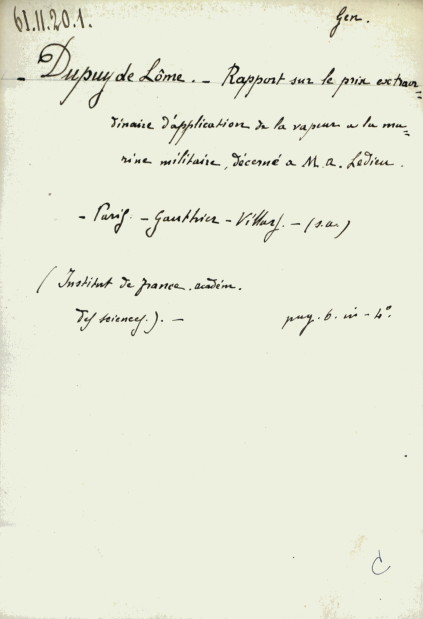 61.11.20.1.
Gen.
- Dupuy de Lôme. - Rapport sur le prix extraor=
dinaire d'application de la vapeur a la ma=
rine militaire, décerné a M. A. Ledieu.
- Paris. - Gauthier - Villars. - (s.a.)
(Institut de france. académ.
des sciences.). - pag. 6. in - 4º.
C